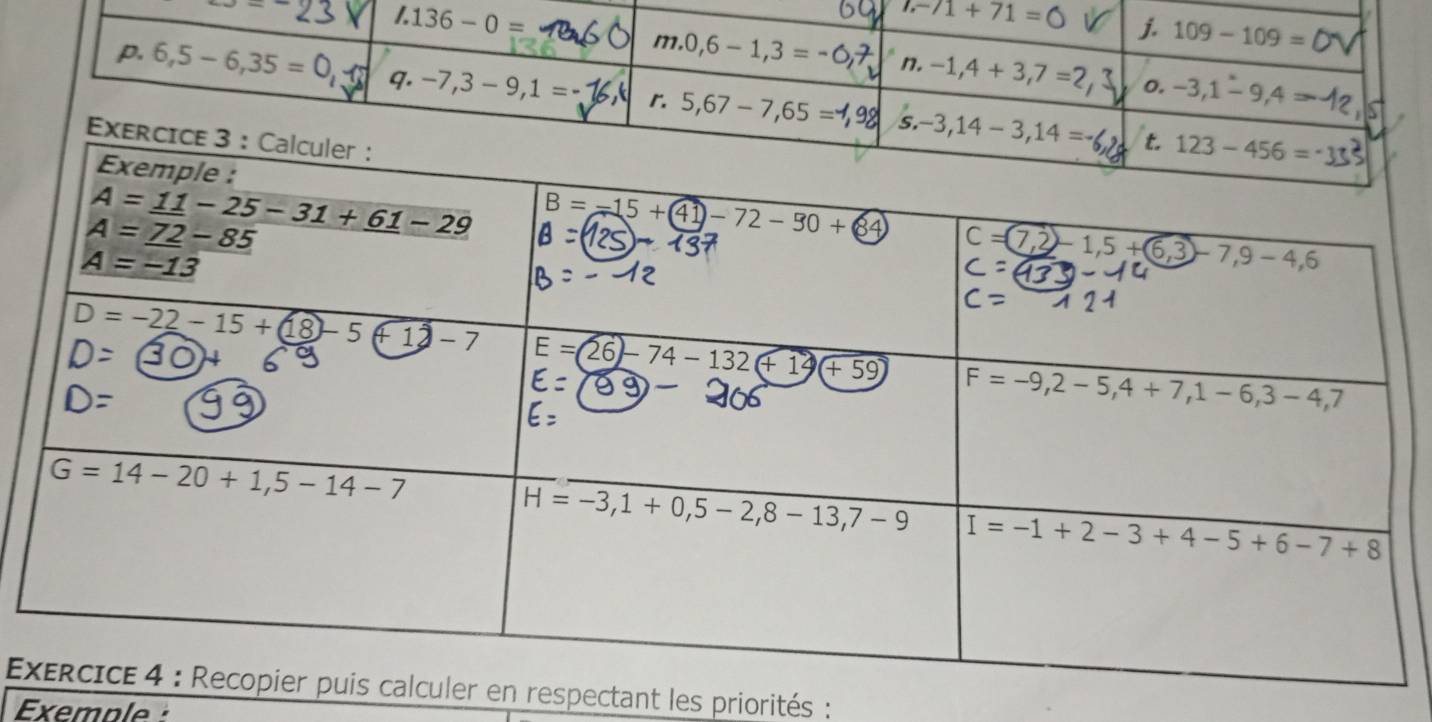 -23
l. 136 - 0 =
136
m. 0,6 - 1,3 = -0,7
-71 + 71 = 0
n. -1,4 + 3,7 = 2,3
j. 109 - 109 = 0
o. -3,1 - 9,4 = -12,5
p. 6,5 - 6,35 = 0,15
q. -7,3 - 9,1 = -16,4
r. 5,67 - 7,65 = -1,98
s. -3,14 - 3,14 = -6,28
t. 123 - 456 = -333
EXERCICE 3 : Calculer :
Exemple :
A = 11 - 25 - 31 + 61 - 29
A = 72 - 85
A = -13
B = -15 + 41 - 72 - 50 + 84
B = 125 - 137
B = -12
C = 7,2 - 1,5 + 6,3 - 7,9 - 4,6
C = 133 - 14
C = 121
D = -22 - 15 + 18 - 5 + 12 - 7
D = 30 + 69
D = 99
E = 26 - 74 - 132 + 14 + 59
E = 99 - 206
E =
F = -9,2 - 5,4 + 7,1 - 6,3 - 4,7
G = 14 - 20 + 1,5 - 14 - 7
H = -3,1 + 0,5 - 2,8 - 13,7 - 9
I = -1 + 2 - 3 + 4 - 5 + 6 - 7 + 8
EXERCICE 4 : Recopier puis calculer en respectant les priorités :
Exemple :